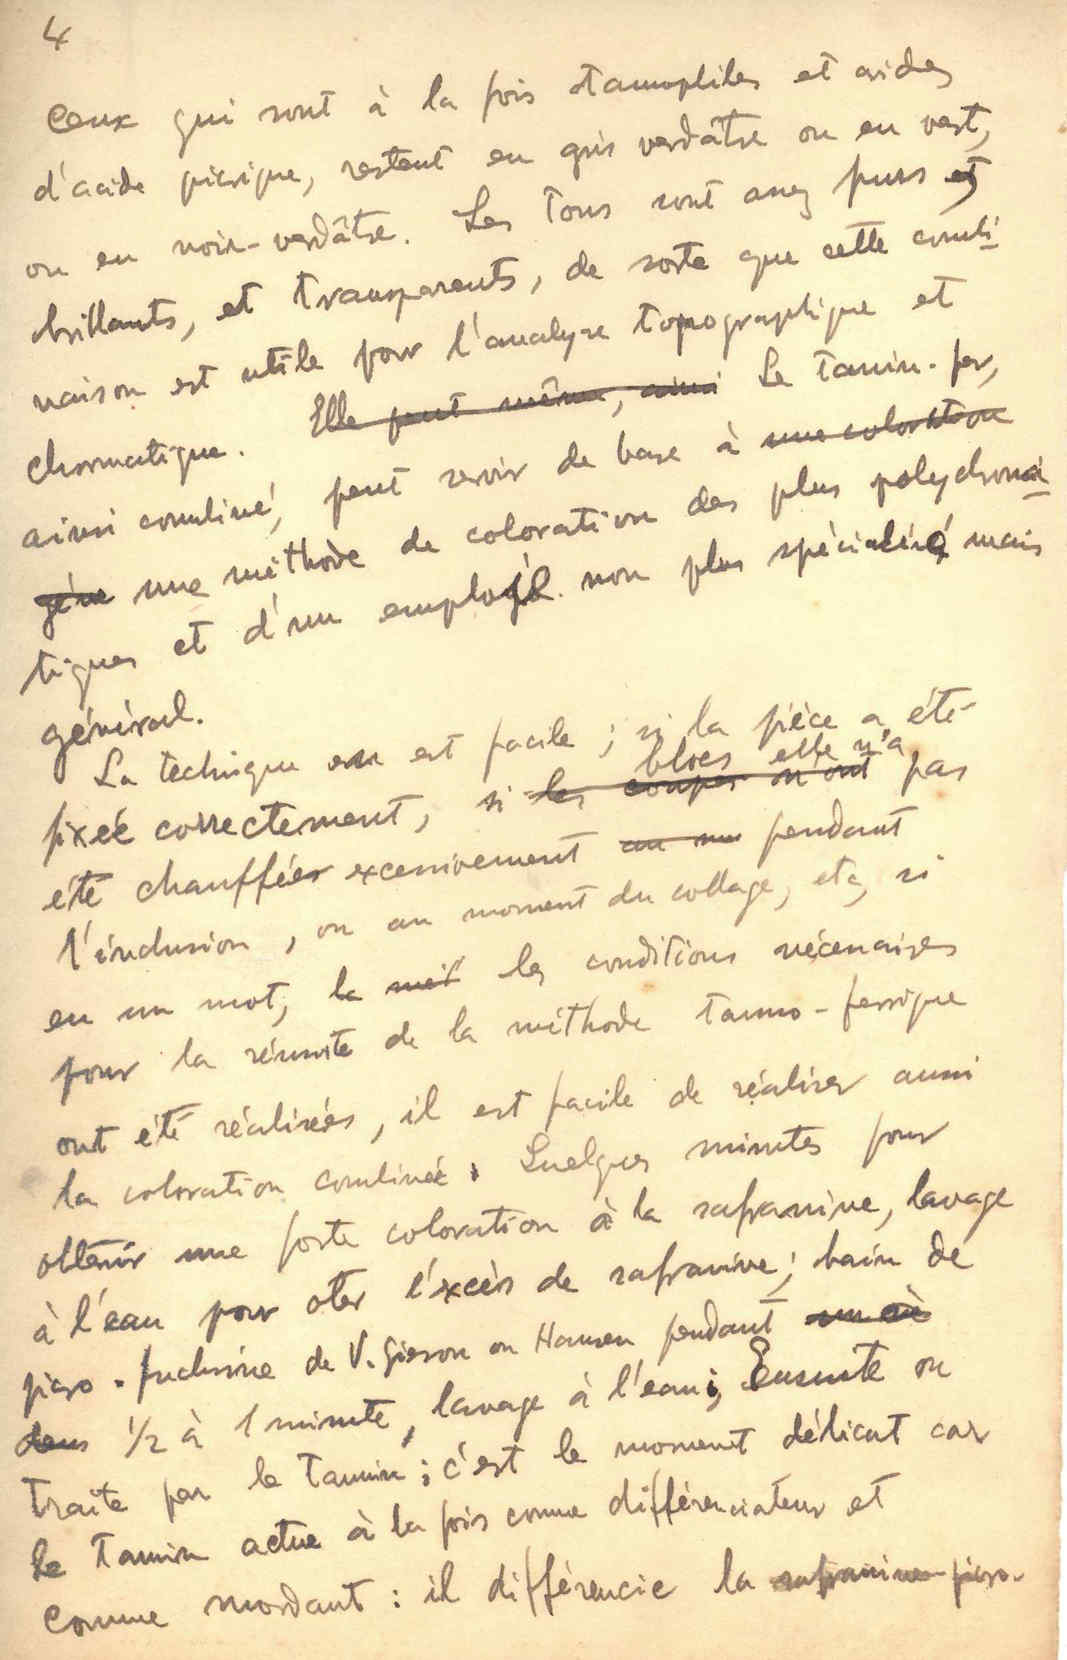 4
Ceux qui sont à la fois tannophiles et avides
d'acide picrique, restent en gris verdâtre ou en vert,
ou en noir-verdâtre. Les tons sont assez purs et
brillants, et transparents, de sorte que cette combi
naison est utile pour l'analyse topographique et
chormatique. Elle peut même, ainsi Le tannin-fer,
ainsi combiné, peut servir de base à une coloration
géne une méthode de coloration des plus polychroma
tiques et d'un emploi non plus spécialisé mais
général.
La technique en est facile ; si la pièce a été
fixée correctement, si les coupes n'ont blocs elle n'a pas
été chauffée excessivement au mo pendant
l'inclusion, ou au moment du collage, etc, si
en un mot, la mét les conditions nécessaires
pour la réussite de la méthode tanno-ferrique
ont été réalisées, il est facile de réaliser aussi
la coloration combinée. Quelques minutes pour
obtenir une forte coloration à la safranine, lavage
à l'eau pour oter l'éxcès de safranine; bain de
picro-fuchsine de V. Gieson ou Hansen pendant
dans 1/2 à 1 minute, lavage à l'eau; Ensuite on
traite par le tannin; c'est le moment délicat car
le tannin actue à la fois comme différenciateur et
comme mordant : il différencie la safranine picro-